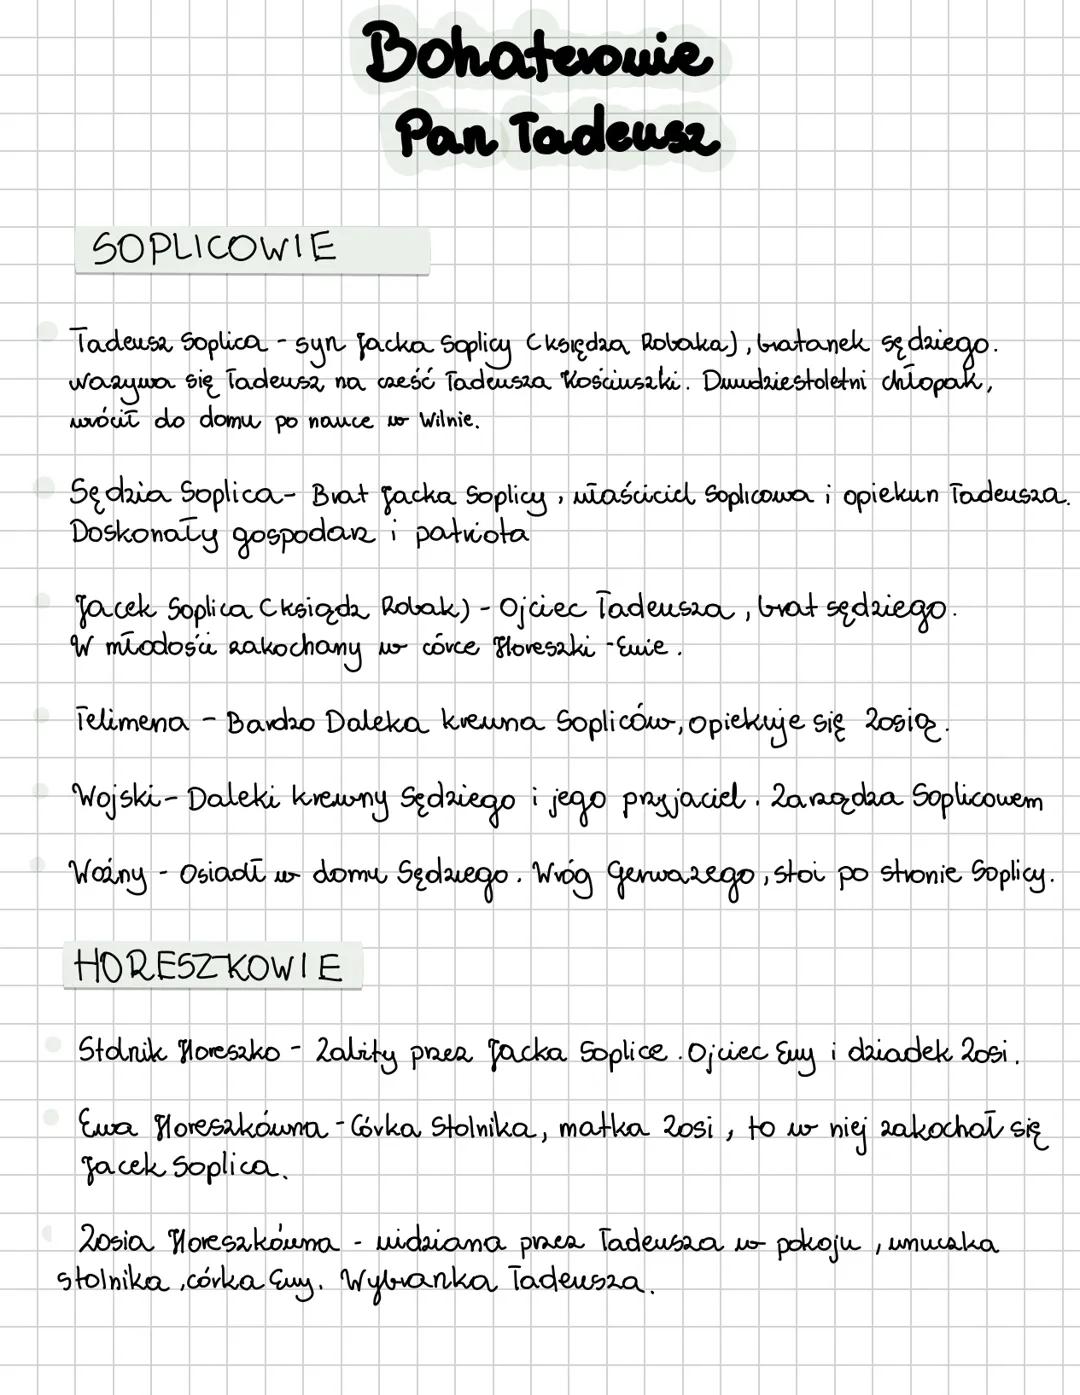 Bohaterowie
Pan Tadeusz
SOPLICOWIE
Tadeusz Soplica - syn Jacka Soplicy (księdza Robaka), bratanek sędziego.
Nazywa się Tadeusz na cześć Tadeusza Kościuszki. Dwudziestoletni chłopak,
wrócił do domu po nauce w Wilnie.
Sędzia Soplica - Brat Jacka Soplicy, właściciel Soplicowa i opiekun Tadeusza.
Doskonały gospodarz i patriota
Jacek Soplica (ksiądz Robak) - Ojciec Tadeusza, brat sędziego.
W młodości zakochany w córce Horeszki - Ewie.
Telimena - Bardzo Daleka krewna Sopliców, opiekuje się Zosią.
Wojski - Daleki krewny Sędziego i jego przyjaciel. Zarządza Soplicowem
Woźny - Osiadł w domu Sędziego. Wróg Gerwazego, stoi po stronie Soplicy.
HORESZKOWIE
Stolnik Horeszko - Zabity przez Jacka Soplice. Ojciec Ewy i dziadek Zosi.
Ewa Horeszkówna - Córka Stolnika, matka Zosi, to w niej zakochał się
Jacek Soplica.
Zosia Horeszkówna - widziana przez Tadeusza w pokoju, wnuczka
stolnika, córka Ewy. Wybranka Tadeusza.